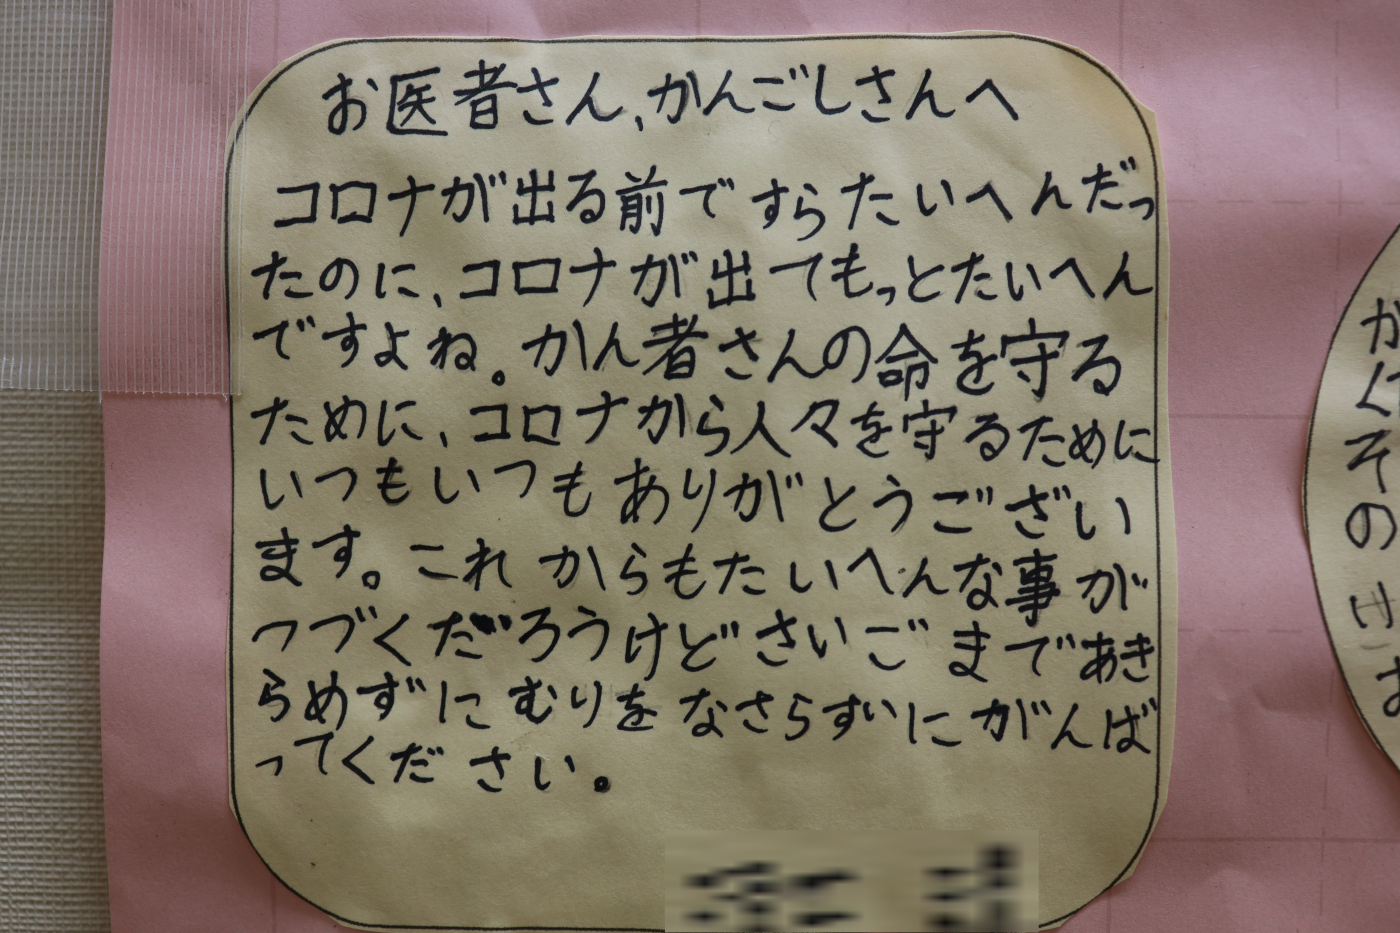 お医者さん、かんごしさんへ
コロナが出る前ですらたいへんだっ
たのに、コロナが出てもっとたいへん
ですよね。かん者さんの命を守る
ために、コロナから人々を守るために
いつもいつもありがとうござい
ます。これからもたいへんな事が
つづくだろうけどさいごまであき
らめずにむりをなさらずにがんば
ってください。
が
く
そ
の